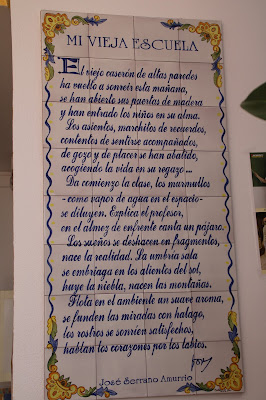 MI VIEJA ESCUELA
El viejo caserón de altas paredes
ha vuelto a sonreir esta mañana,
se han abierto sus puertas de madera
y han entrado los niños en su alma.
Los asientos, marchitos de recuerdos,
contentos de sentirse acompañados,
de gozo y de placer se han abatido,
acogiendo la vida en su regazo ...
Da comienzo la clase, los murmullos
-como vapor de agua en el espacio-
se diluyen. Explica el profesor,
en el almez de enfrente canta un pájaro.
Los sueños se deshacen en fragmentos,
nace la realidad. La umbría sala
se embriaga en los alientos del sol,
huye la niebla, nacen las montañas.
Flota en el ambiente un suave aroma,
se funden las miradas con halago,
los rostros se sonríen satisfechos,
hablan los corazones por los labios.
José Serrano Amurrio